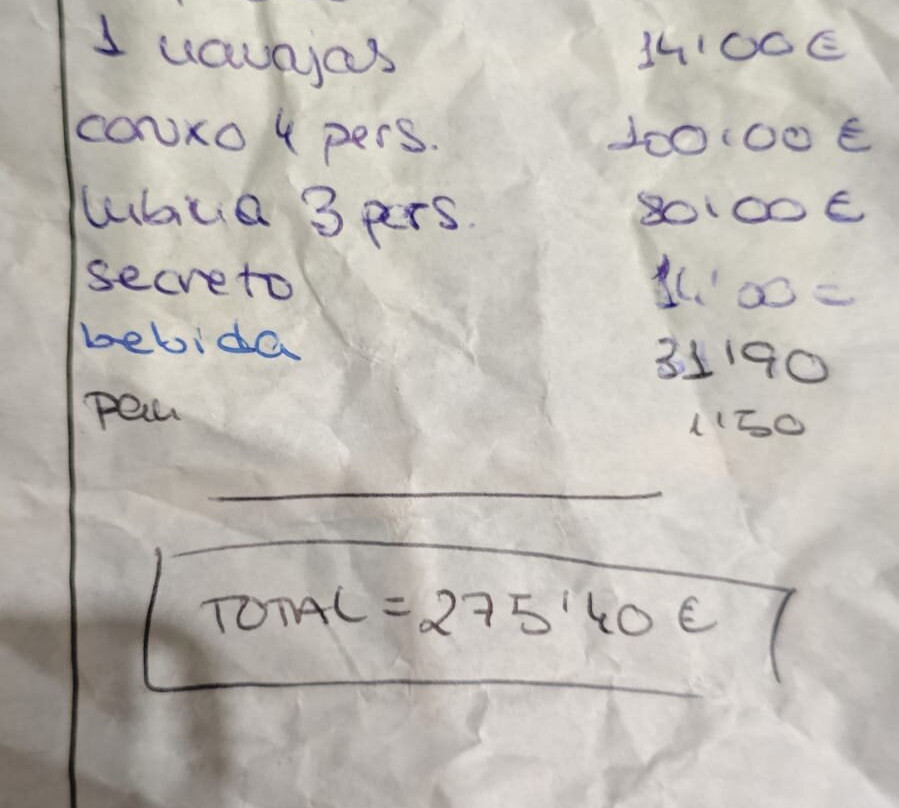 1 navajas 14'00 €
conxo 4 pers. 100'00 €
lubina 3 pers. 80'00 €
secreto 14'00 =
bebida 31'90
pan 1'50
TOTAL = 275'40 €